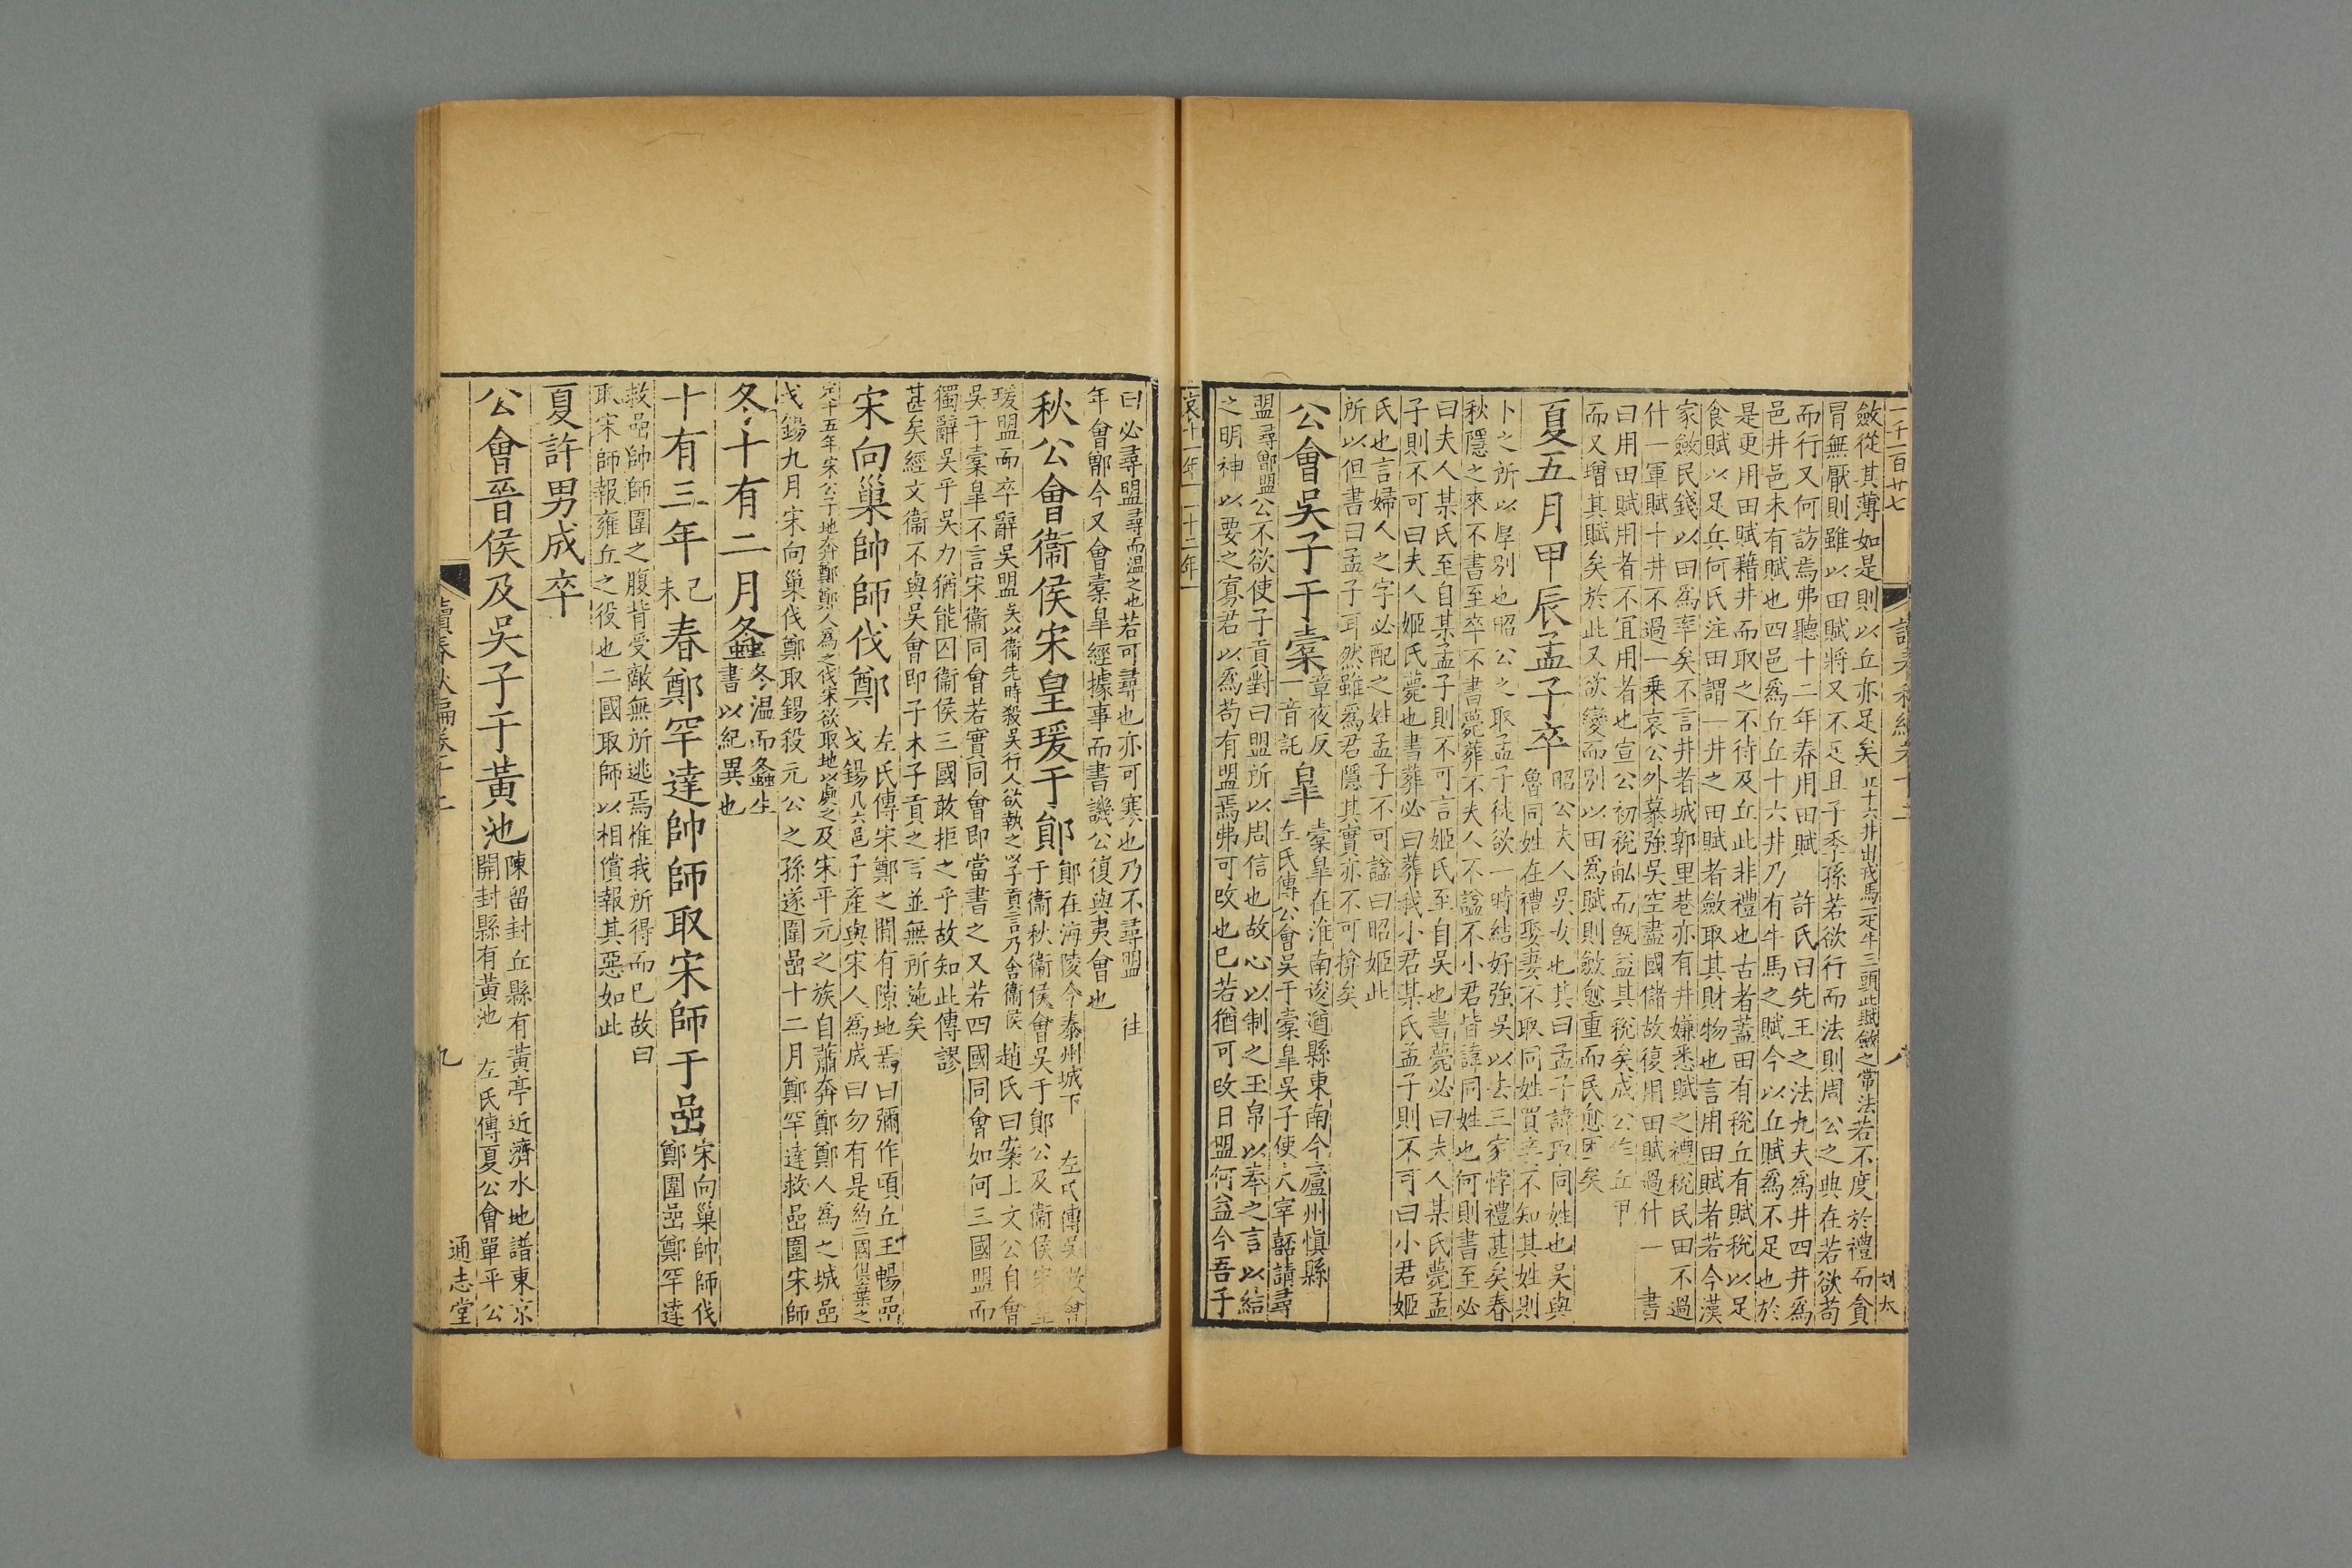 二千一百廿七
讀春秋編卷十二
八
刘太
斂從其薄如是則以丘亦足矣丘十六井出戎馬一疋牛三頭此賦斂之常法若不度於禮而貪
冒無厭則雖以田賦將又不足且子季孫若欲行而法則周公之典在若欲苟
而行又何訪焉弗聽十二年春用田賦 許氏曰先王之法九夫爲井四井爲
邑井邑未有賦也四邑爲丘丘十六井乃有牛馬之賦今以丘賦爲不足也於
是更用田賦藉井而取之不待及丘此非禮也古者蓋田有稅丘有賦稅以足
食賦以足兵何氏注田謂一井之田賦者斂取其財物也言用田賦者若今漢
家斂民錢以田爲率矣不言井者城郭里巷亦有井嫌悉賦之禮稅民田不過
什一軍賦十井不過一乗哀公外慕強吳空盡國儲故復用田賦過什一 書
曰用田賦用者不冝用者也宣公初稅畝而旣益其稅矣成公作丘甲
而又增其賦矣於此又欲變而別以田爲賦則斂愈重而民愈困矣
夏五月甲辰孟子卒昭公夫人吳女也其曰孟子諱取同姓也吳與
魯同姓在禮娶妻不取同姓買妾不知其姓則
卜之所以厚别也昭公之取孟子徒欲一時結好強吳以去三家悖禮甚矣春
秋隱之來不書至卒不書薨葬不夫人不謚不小君皆諱同姓也何則書至必
曰夫人某氏至自某孟子則不可言姬氏至自吳也書薨必曰夫人某氏薨孟
子則不可曰夫人姬氏薨也書葬必曰葬我小君某氏孟子則不可曰小君姬
氏也言婦人之字必配之姓孟子不可謚曰昭姬此
所以但書曰孟子耳然雖爲君隱其實亦不可揜矣
公會吳子于橐章夜反
一音託臯橐臯在淮南逡遒縣東南今廬州愼縣
左氏傳公會吳于橐臯吳子使大宰嚭請尋
盟尋鄫盟公不欲使子貢對曰盟所以周信也故心以制之玉帛以奉之言以結
之明神以要之寡君以爲苟有盟焉弗可改也已若猶可改日盟何益今吾子
哀十一年 十二年
曰必尋盟尋而温之也若可尋也亦可寒也乃不尋盟 往
年會鄫今又會橐臯經據事而書譏公復與夷會也
秋公會衞侯宋皇瑗于鄖鄖在海陵今泰州城下 左氏傳吳徵會
于衞秋衞侯會吳于鄖公及衞侯宋皇
瑗盟而卒辭吳盟吳以衞先時殺吳行人欲執之以子貢言乃舍衞侯 趙氏曰案上文公自會
吳于橐臯不言宋衞同會若實同會即當書之又若四國同會如何三國盟而
獨辭吳乎吳力猶能囚衞侯三國敢拒之乎故知此傳謬
甚矣經文衞不與吳會即子木子貢之言並無所施矣
宋向巢帥師伐鄭左氏傳宋鄭之閒有隙地焉曰彌作頃丘玉暢嵒
戈鍚凡六邑子產與宋人爲成曰勿有是約二國俱棄之
定十五年宋公子地奔鄭鄭人爲之伐宋欲取地以處之及宋平元之族自蕭奔鄭鄭人爲之城嵒
戈鍚九月宋向巢伐鄭取鍚殺元公之孫遂圍嵒十二月鄭罕達救嵒圍宋師
冬十有二月螽冬温而螽生
書以紀異也
十有三年己
未春鄭罕達帥師取宋師于嵒宋向巢帥師伐
鄭圍嵒鄭罕達
救嵒帥師圍之腹背受敵無所逃焉惟我所得而已故曰
取宋師報雍丘之役也二國取師以相償報其惡如此
夏許男成卒
公會晉侯及吳子于黃池陳留封丘縣有黃亭近濟水地譜東京
開封縣有黃池 左氏傳夏公會單平公
讀春秋編卷十二
九
通志堂